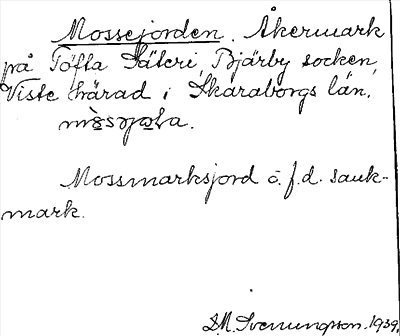 Mossejorden. Åkermark
på Töfta Säteri, Bjärby socken,
Viste härad i Skaraborgs län.
Mossmarksjord å f.d. sank-
mark.
S.M. Svenungsson. 1939.